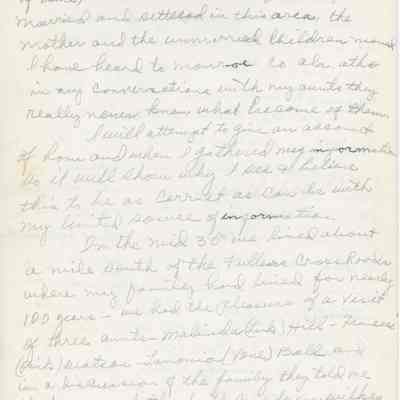 married and settled in this area, the
mother and the unmarried children moved
I have heard to monroe co ala, altho
in my conversations with my aunts they
really never knew what became of them.
I will attempt to give an account
of how and when I gathered my information
as it will show why I see & believe
this to be as correct as can be with
my limited source of information.
In the mid 30's we lived about
a mile south of the Fullers Crossroads
where my family had lived for nearly
100 years - we had the pleasure of a visit
of three aunts - Malinda ( ) Hill - Frances
( ) Watson - Ball and
in a discussion of the family they told me